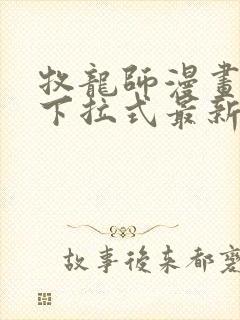 牧龍師漫畫
下拉式最新
故事後來都